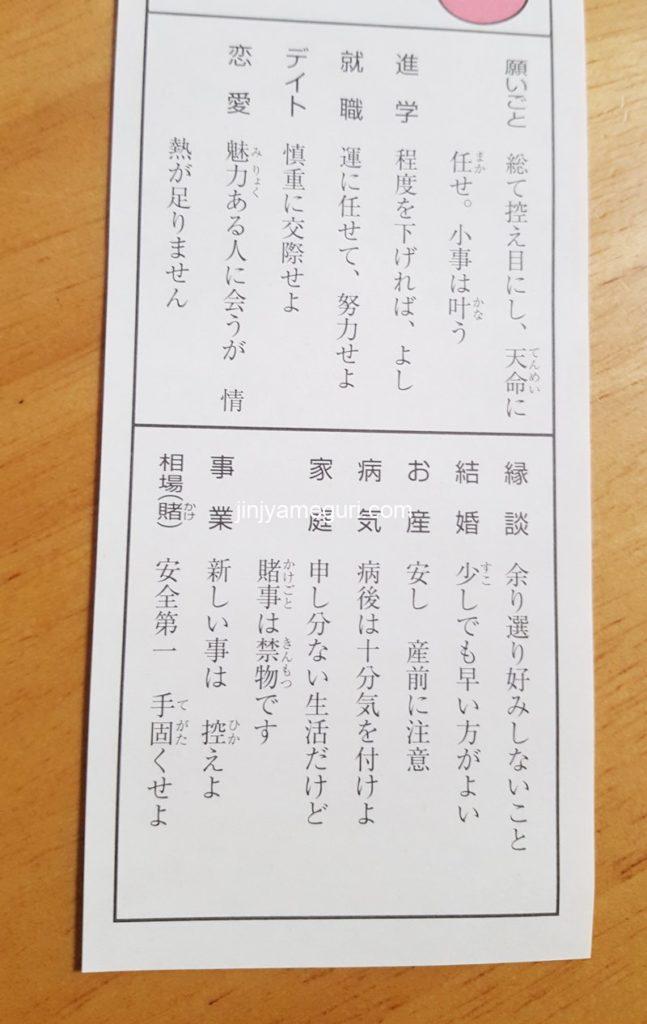 願いごと 総て控え目にし、天命に
任せ。小事は叶う
進学 程度を下げれば、よし
就職 運に任せて、努力せよ
デイト 慎重に交際せよ
恋愛 魅力ある人に会うが 情
熱が足りません
縁談 余り選り好みしないこと
結婚 少しでも早い方がよい
お産 安し 産前に注意
病気 病後は十分気を付けよ
家庭 申し分ない生活だけど
賭事は禁物です
事業 新しい事は 控えよ
相場(賭) 安全第一 手固くせよ
jinjyameguri.com